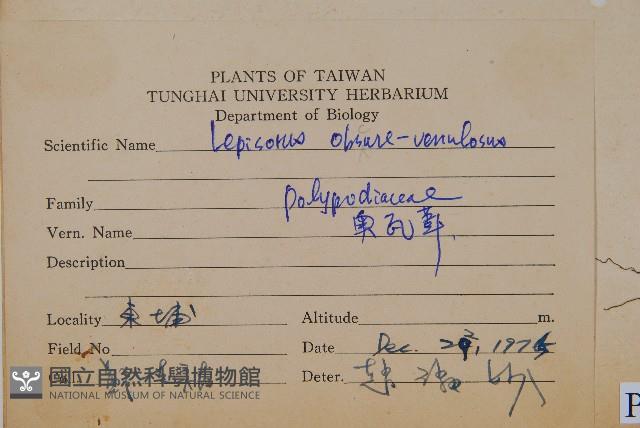 PLANTS OF TAIWAN
TUNGHAI UNIVERSITY HERBARIUM
Department of Biology
Scientific Name Lepisorus obsure-venulosus
Family polypodiaceae
Vern. Name 奧瓦葦
Description
Locality 東埔
Altitude m.
Field No
Date Dec. 1975
Deter.
國立自然科學博物館
NATIONAL MUSEUM OF NATURAL SCIENCE
P